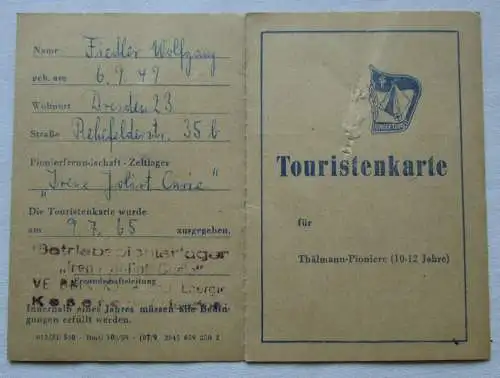 Name Fiedler Wolfgang
geb. am 6.9.49
Wohnort Dresden 23
Straße Rehefelderstr. 35 b
Pionierfreundschaft - Zeltlager
„Irène Joliot Curie"
Die Touristenkarte wurde
am 9.7.65 ausgegeben.
Betriebspionierlager
Freundschaftsleitung
VE Energie
Innerhalb eines Jahres müssen alle Bedin-
gungen erfüllt werden.
Touristenkarte
für
Thälmann-Pioniere (10-12 Jahre)